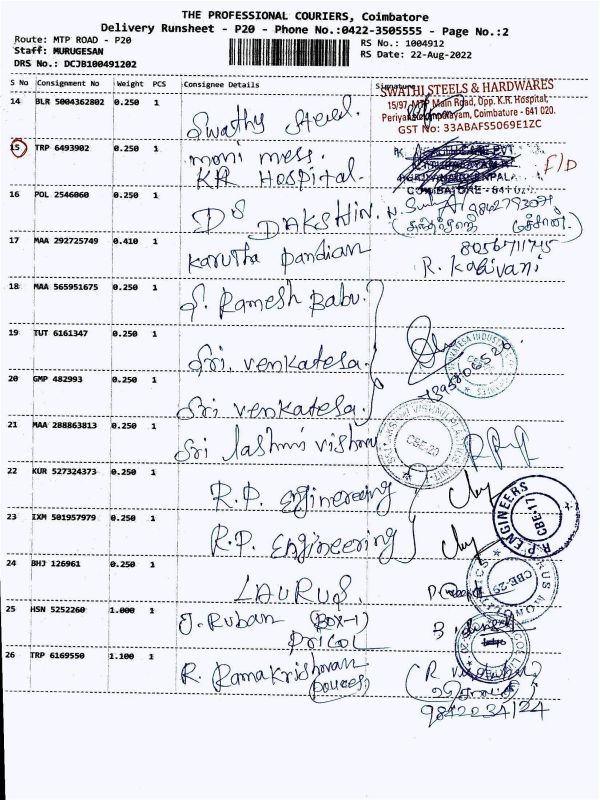 THE PROFESSIONAL COURIERS, Coimbatore
Delivery Runsheet - P20 - Phone No.:0422-3505555 - Page No.:2
Route: MTP ROAD - P20
RS No.: 1004912
Staff: MURUGESAN
RS Date: 22-Aug-2022
DRS No.: DCJB100491202
S No Consignment No Weight PCS Consignee Details Signature
SWATHI STEELS & HARDWARES
15/97, MTP Main Road, Opp. K.R. Hospital,
Coimbature - 641 020.
GST No: 33ABAFS5069E1ZC
14 BLR 5004362802 0.250 1 Swathy Steel.
15 TRP 6493902 0.250 1 moni mess.
KR Hospital. F/D
COIMBATORE - 641
16 POL 2546060 0.250 1 DS DAKSHIN.
17 MAA 292725749 0.410 1 Karutha Pandian
R. Kalivani
18 MAA 565951675 0.250 1 S. Ramesh Babu.
19 TUT 6161347 0.250 1 Sri. Venkatesa.
20 GMP 482993 0.250 1 Sri Venkatesa.
21 MAA 288863813 0.250 1 Sri lashmi vishnu
CBE-20
22 KUR 527324373 0.250 1 R.P. Engineering
R.P ENGINEERS
CBE-17
23 IXM 501957979 0.250 1 R.P. Engineering
24 BHJ 126961 0.250 1 LAURUS.
CBE-29
25 HSN 5252260 1.000 1 J. Ruban (BOX-1)
PRICOL
26 TRP 6169550 1.100 1 R. Ramakrishnan
9842034124